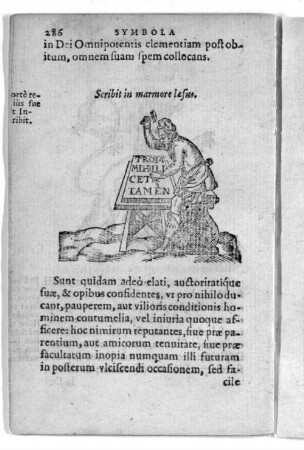 286 SYMBOLA
in Dei Omnipotentis clementiam post ob-
itum, omnem suam spem collocans.
ortè re-
iùs fue
t In-
ribit.
Scribit in marmore læsus.
MIHI LI
CET
TAMEN
Sunt quidam adeò elati, auctoritatique
suæ, & opibus confidentes, vt pro nihilo du-
cant, pauperem, aut vilioris conditionis ho-
minem contumelia, vel iniuria quoque af-
ficere: hoc nimirum reputantes, siue præ pa-
rentium, aut amicorum tenuitate, siue præ
facultatum inopia numquam illi futuram
in posterum vlciscendi occasionem, sed fa-
cile